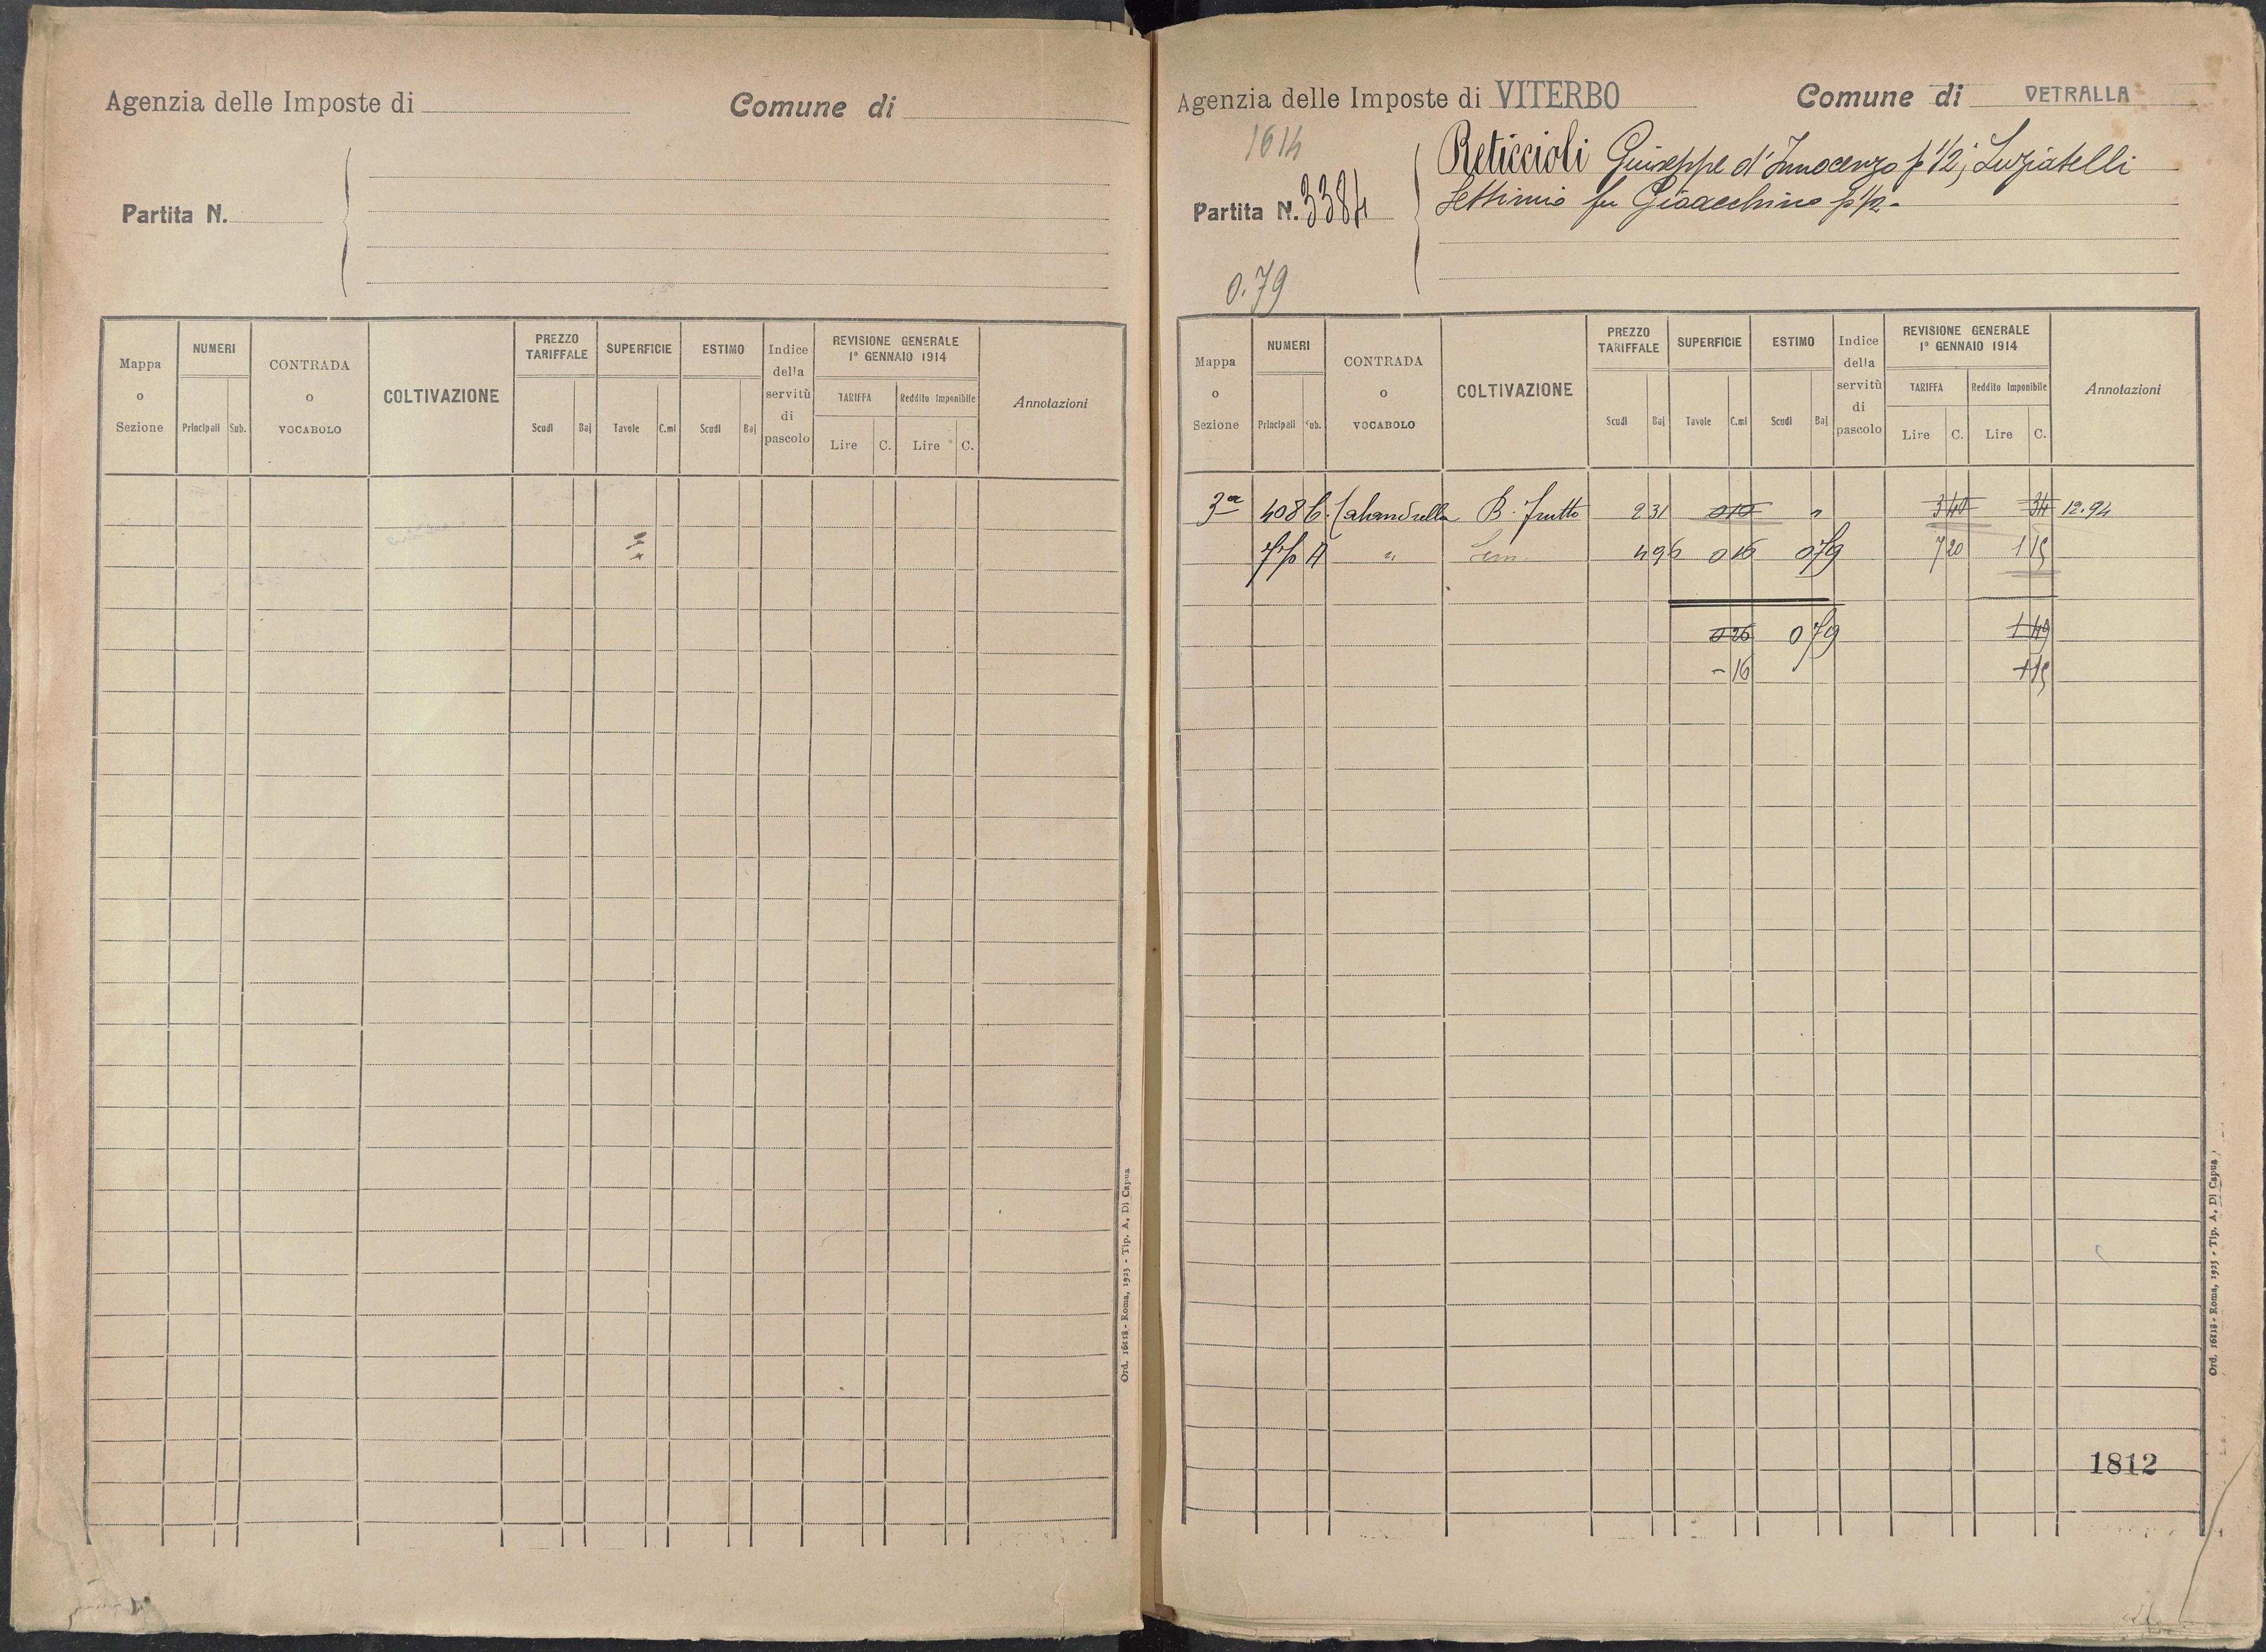 Agenzia delle Imposte di
Comune di
Partita N.
Mappa o Sezione
NUMERI
Principali Sub.
CONTRADA o VOCABOLO
COLTIVAZIONE
PREZZO TARIFFALE
Scudi Baj
SUPERFICIE
Tavole C.mi
ESTIMO
Scudi Baj
Indice della servitù di pascolo
REVISIONE GENERALE
1° GENNAIO 1914
TARIFFA
Lire C.
Reddito Imponibile
Lire C.
Annotazioni
Ord. 16118 - Roma, 1923 - Tip. A. Di Capua
Agenzia delle Imposte di VITERBO
Comune di VETRALLA
1614
Reticcioli Giuseppe d'Innocenzo p 1/2; Luziatelli
Partita N. 3384
Settimio fu Gioacchino p 1/2.
0.79
Mappa o Sezione
NUMERI
Principali Sub.
CONTRADA o VOCABOLO
COLTIVAZIONE
PREZZO TARIFFALE
Scudi Baj
SUPERFICIE
Tavole C.mi
ESTIMO
Scudi Baj
Indice della servitù di pascolo
REVISIONE GENERALE
1° GENNAIO 1914
TARIFFA
Lire C.
Reddito Imponibile
Lire C.
Annotazioni
3a 408 B. frutto 2 31 0 10 " 3 40 34 12.94
" Sem. 4 96 0 16 0 79 7 20 1 15
0 26 0 79 1 49
- 16 1 15
1812
Ord. 16118 - Roma, 1923 - Tip. A. Di Capua